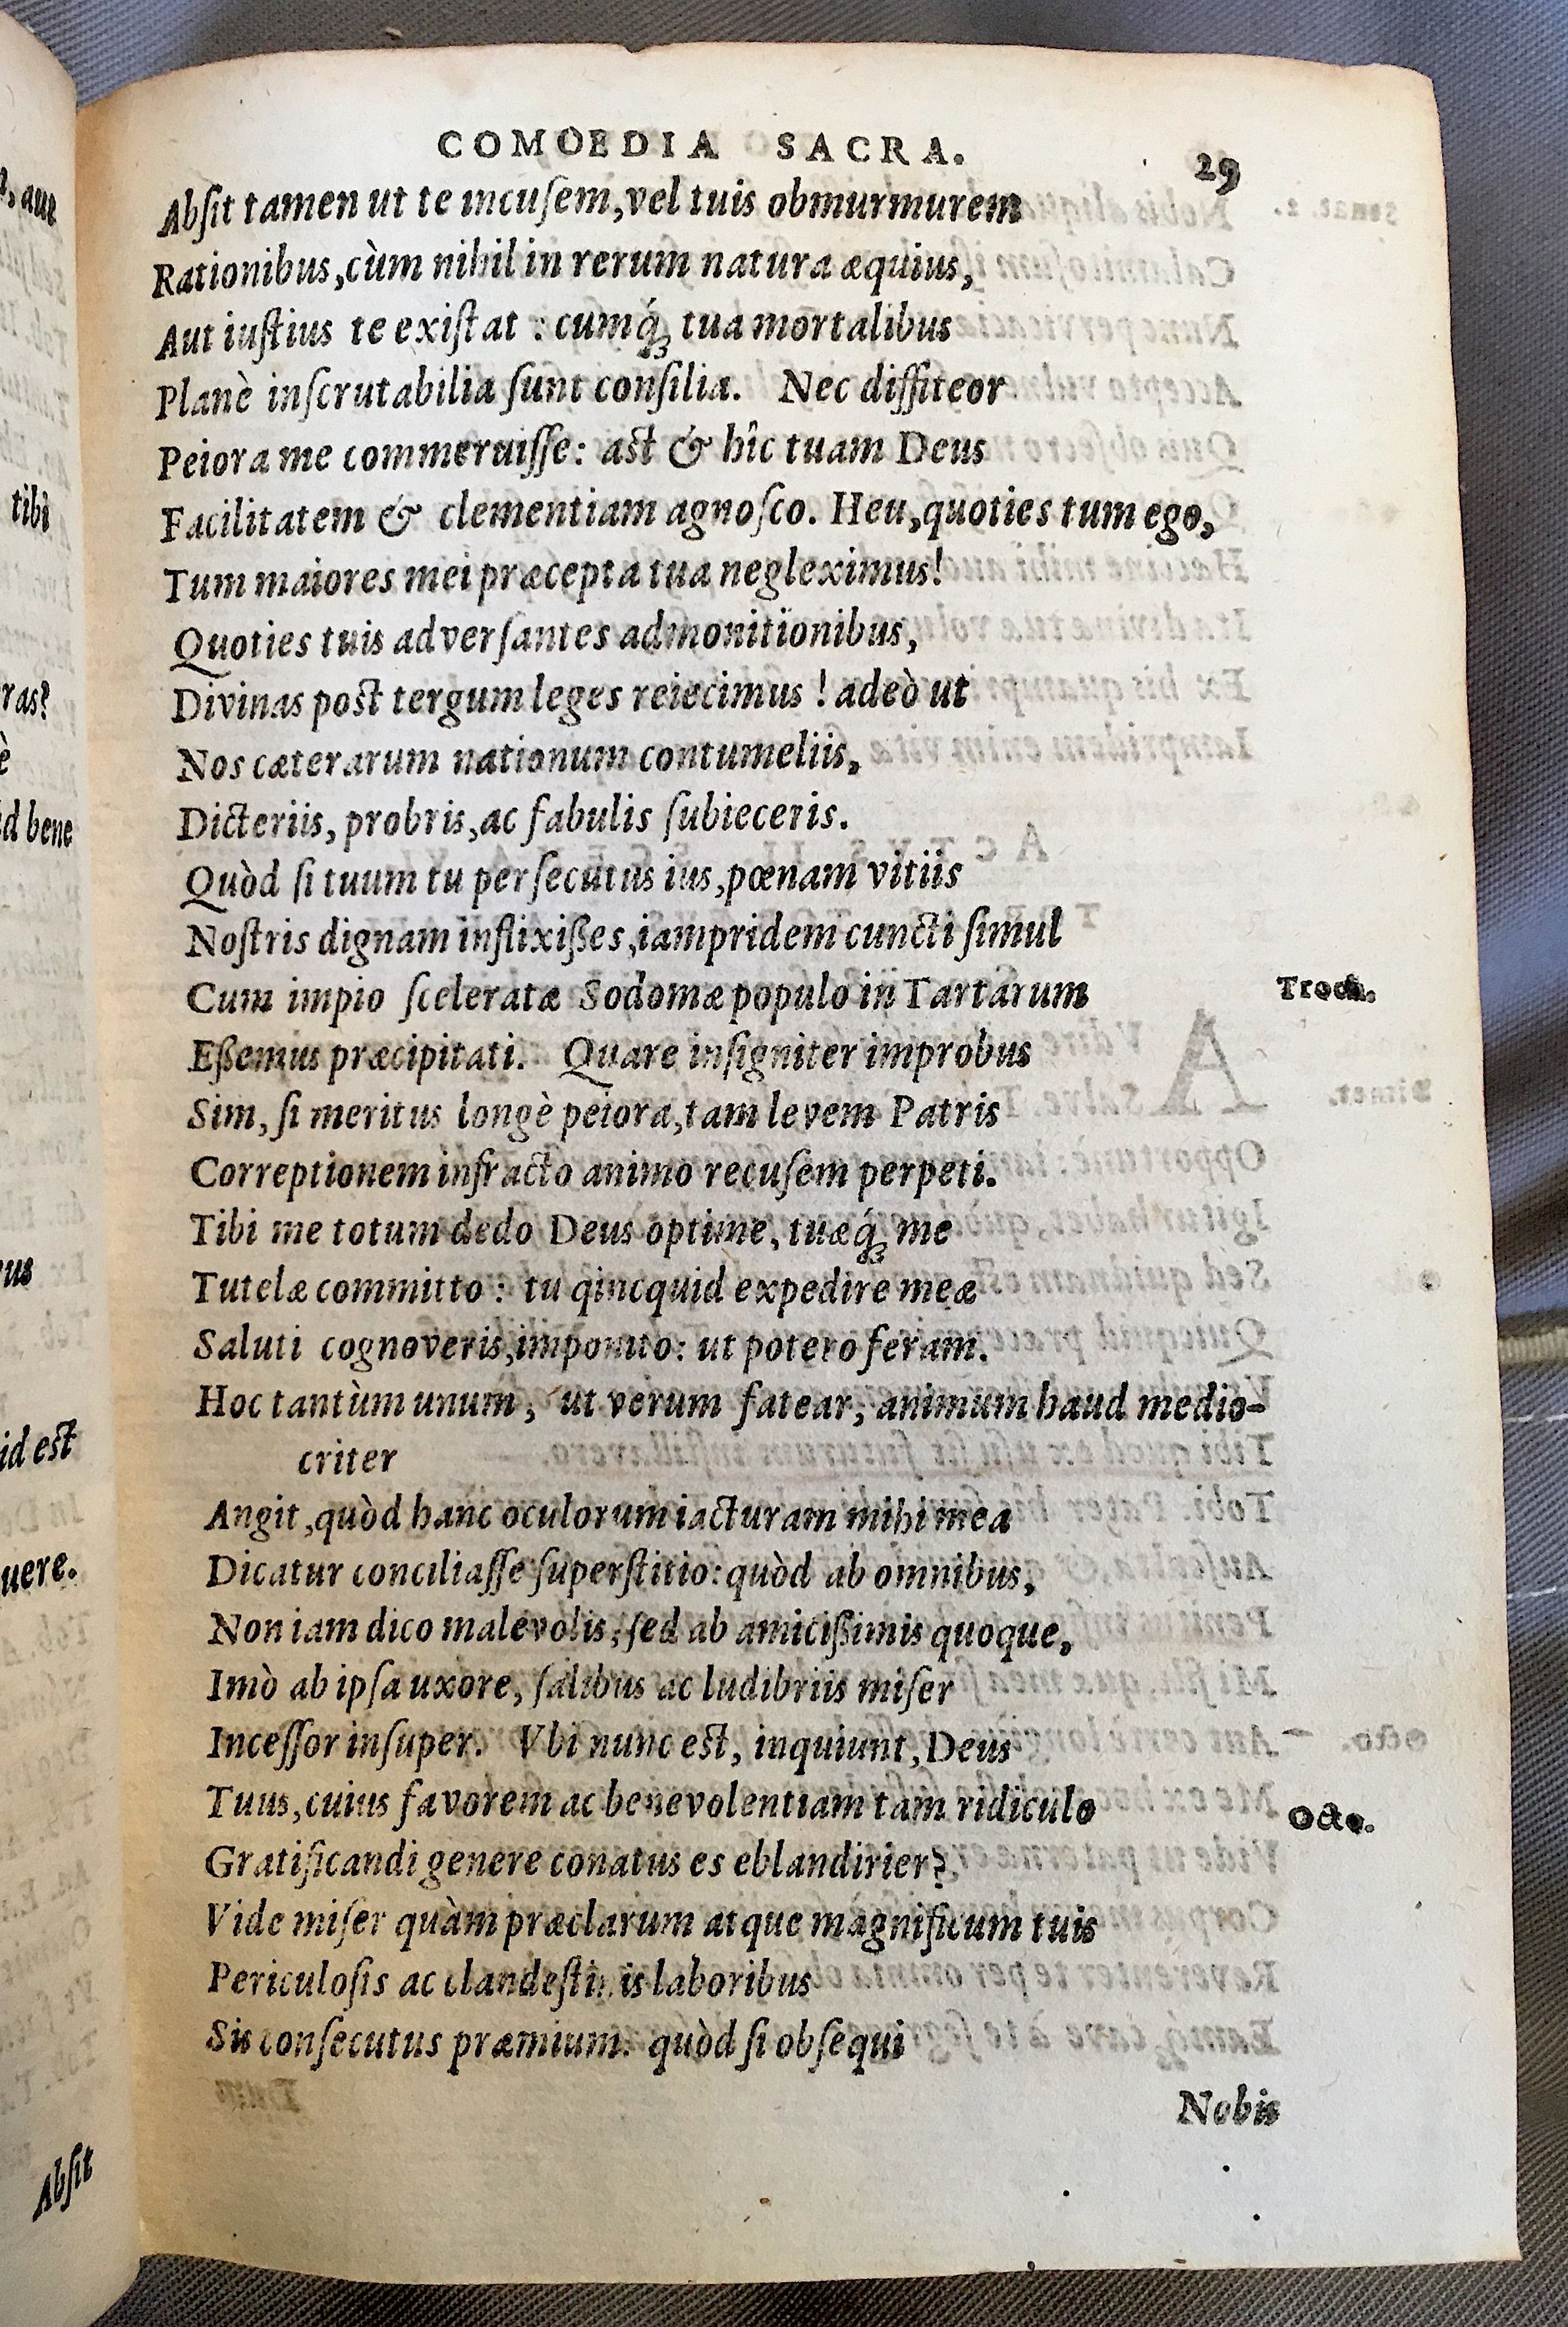 COMOEDIA SACRA. 29
Absit tamen ut te incusem, vel tuis obmurmurem
Rationibus, cùm nihil in rerum natura æquius,
Aut iustius te existat : cumq́; tua mortalibus
Planè inscrutabilia sunt consilia. Nec diffiteor
Peiora me commeruisse: ast & hîc tuam Deus
Facilitatem & clementiam agnosco. Heu, quoties tum ego,
Tum maiores mei præcepta tua negleximus!
Quoties tuis adversantes admonitionibus,
Divinas post tergum leges reiecimus ! adeò ut
Nos cæterarum nationum contumeliis,
Dicteriis, probris, ac fabulis subieceris.
Quòd si tuum tu persecutus ius, pœnam vitiis
Nostris dignam inflixißes, iampridem cuncti simul
Cum impio sceleratæ Sodomæ populo in Tartarum Troch.
Eßemus præcipitati. Quare insigniter improbus
Sim, si meritus longè peiora, tam levem Patris
Correptionem infracto animo recusem perpeti.
Tibi me totum dedo Deus optime, tuæq́; me
Tutelæ committo : tu qincquid expedire meæ
Saluti cognoveris, imponito: ut potero feram.
Hoc tantùm unum, ut verum fatear, animum haud medio-
criter
Angit, quòd hanc oculorum iacturam mihi mea
Dicatur conciliasse superstitio: quòd ab omnibus,
Non iam dico malevolis, sed ab amicißimis quoque,
Imò ab ipsa uxore, salibus ac ludibriis miser
Incessor insuper. Vbi nunc est, inquiunt, Deus
Tuus, cuius favorem ac benevolentiam tam ridiculo Octo.
Gratificandi genere conatus es eblandirier?
Vide miser quàm præclarum atque magnificum tuis
Periculosis ac clandestinis laboribus
Sis consecutus præmium. quòd si obsequi
Nobis
tibi
ras?
è
d bene
us
id est
uere.
Absit